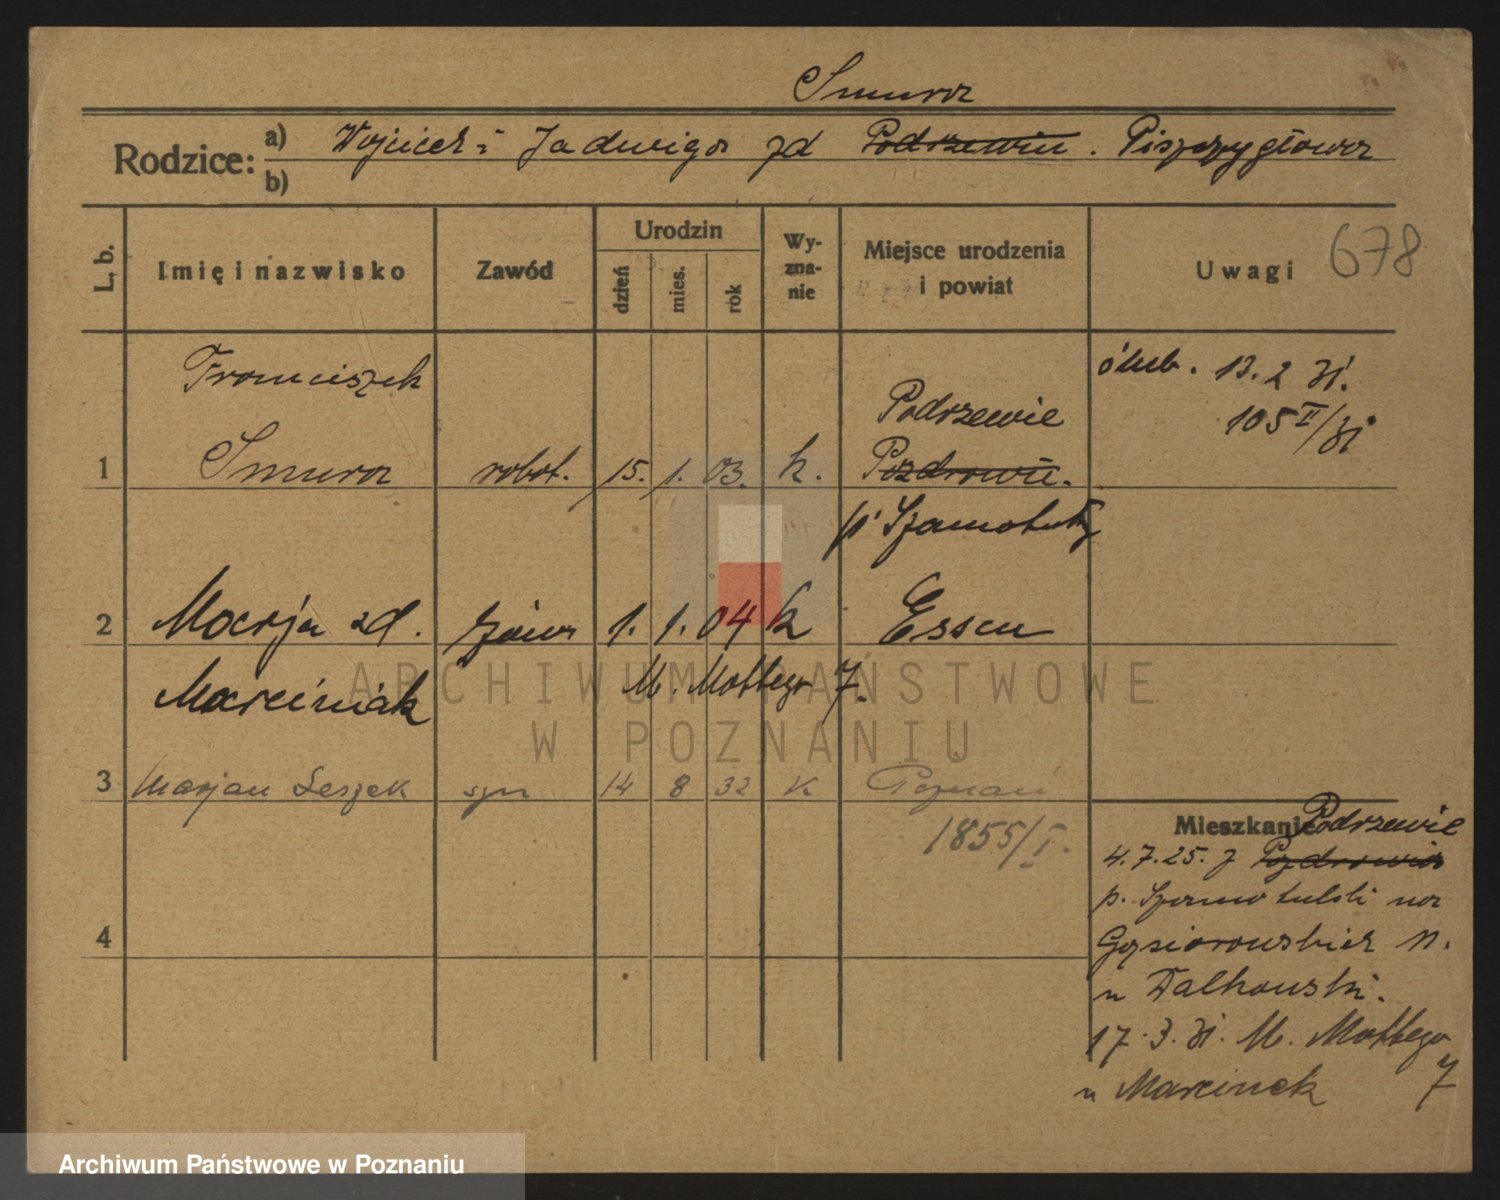 Smura
Rodzice: a) Wojciech i Jadwiga zd Podrzewiu. Piszczygłowa
b)
L. b. Imię i nazwisko Zawód Urodzin dzień mies. rok Wyznanie Miejsce urodzenia i powiat Uwagi 678
Franciszek ślub. 13.2 31.
Podrzewie 105 II/31
1 Smura robot. 15. 1. 03. k. Pozdrowie.
p. Szamotuły
2 Marja zd. żona 1. 1. 04 k Essen
Marciniak M. Mottego 7.
3 Marjan Leszek syn 14 8 32 K Poznań
1855/I.
Mieszkanie Podrzewie
4.7.25. z Pozdrowia
p. Szamotulski na
4 Gąsiorowskich 11.
u Walkowski.
17.3.31. M. Mottego
7
u Marcinek
ARCHIWUM PAŃSTWOWE
W POZNANIU
Archiwum Państwowe w Poznaniu